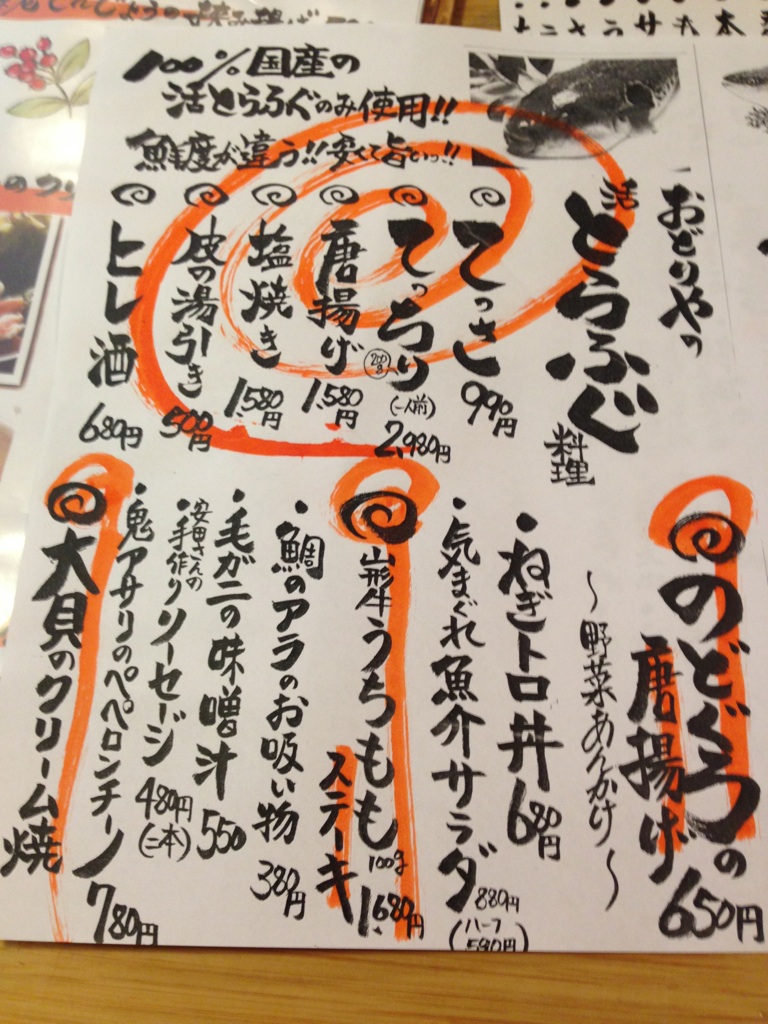 100%国産の
活とらふぐのみ使用!!
鮮度が違う!!安くて旨いっ!!
おどりやの
活とらふぐ料理
てっさ 990円
てっちり 200g (一人前) 2,980円
唐揚げ 1,580円
塩焼き 1,580円
皮の湯引き 500円
ヒレ酒 680円
のどぐろの
唐揚げ 650円
〜野菜あんかけ〜
・ねぎトロ丼 680円
・気まぐれ魚介サラダ 880円
(ハーフ 590円)
山形牛うちもも 100g 1,680円
ステーキ
・鯛のアラのお吸い物 380円
・毛ガニの味噌汁 550
・安田さんの手作りソーセージ 480円 (二本)
・鬼アサリのペペロンチーノ 780円
大貝のクリーム焼